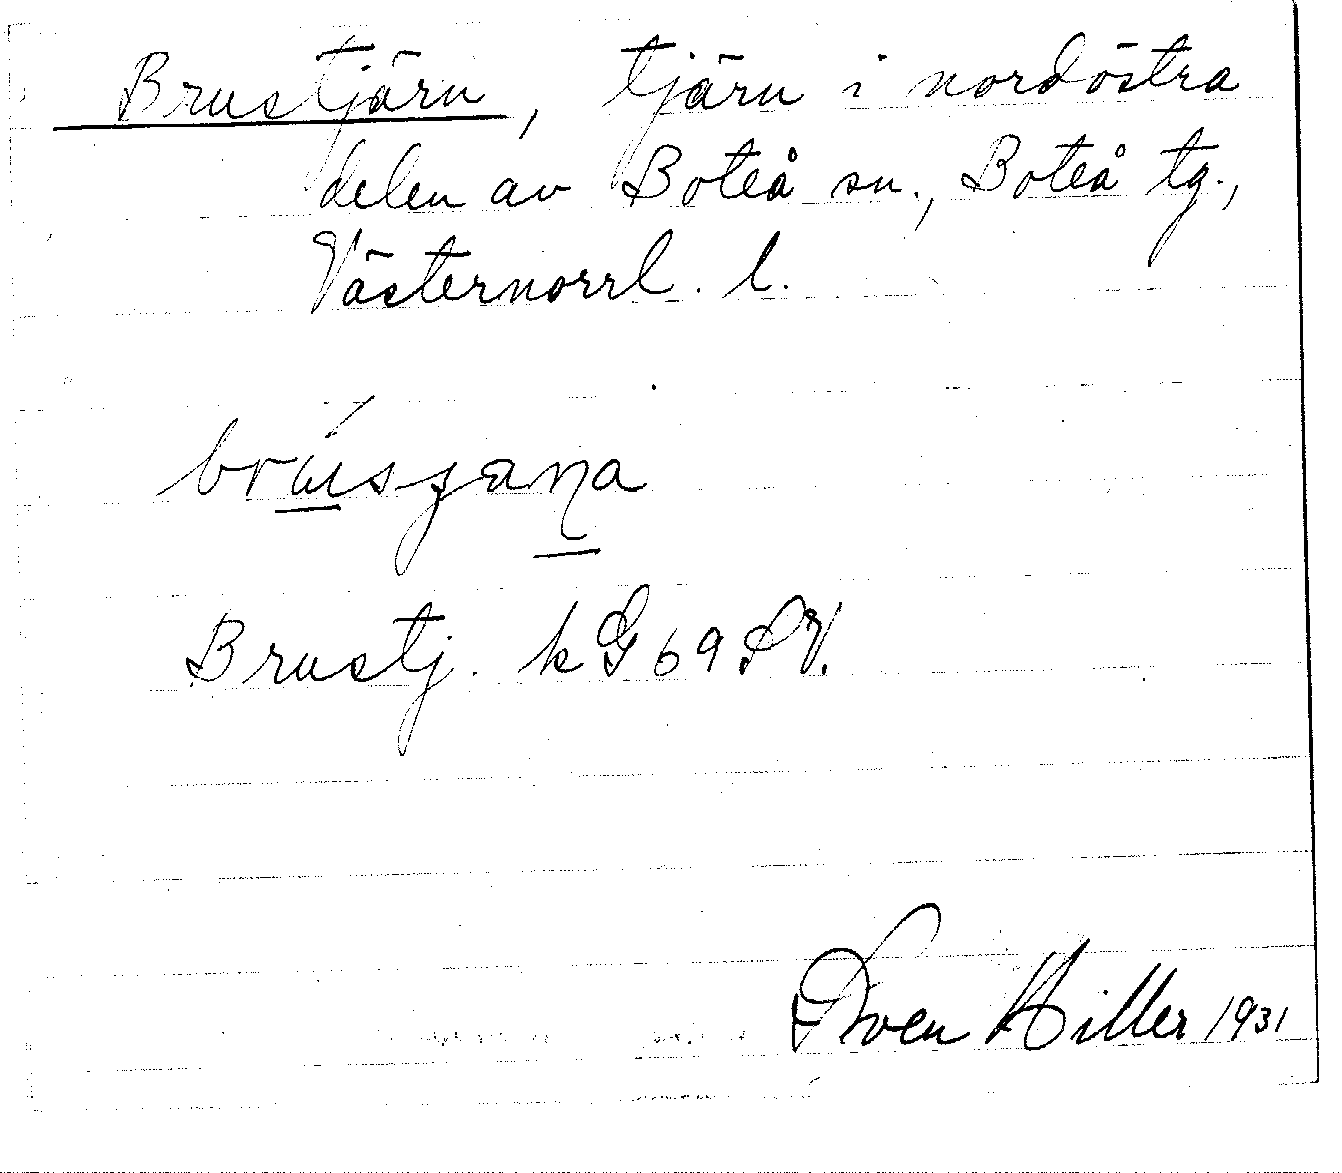 Brustjärn, tjärn i nordöstra
delen av Boteå sn., Boteå tg.,
Västernorrl. l.
Brustj. kG 69 SV.
Sven Hiller 1931